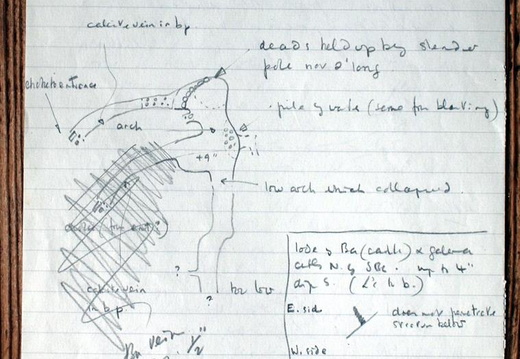 calcite vein in bp
deads held up by slender
pole nov 8' long
choked entrance
pile of waste (some from blasting)
arch
+9"
low arch which collapsed.
?
?
too low
calcite vein
in bp
Ba vein
1/2"
lode of Ba (caulk) & galena
up to 4"
dip S.
E. side
does not penetrate
below
W. side